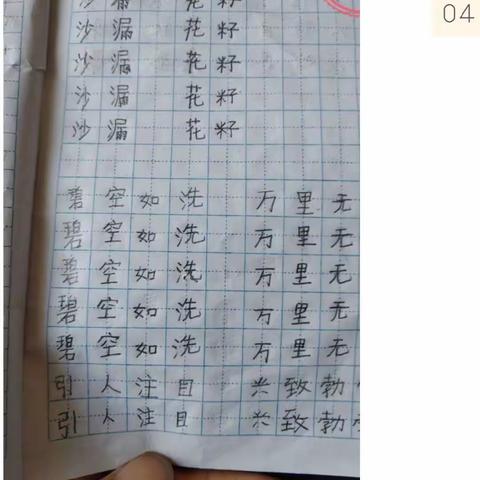 04
沙漏 花籽
沙漏 花籽
沙漏 花籽
沙漏 花籽
沙漏 花籽
碧空如洗 万里无
碧空如洗 万里无
碧空如洗 万里无
碧空如洗 万里无
碧空如洗 万里无
引人注目 兴致勃
引人注目 兴致勃